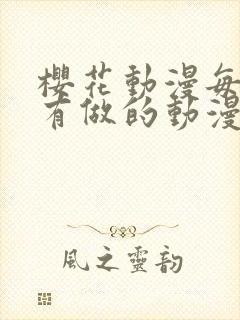 櫻花動漫每
有做的動漫
風之靈韵